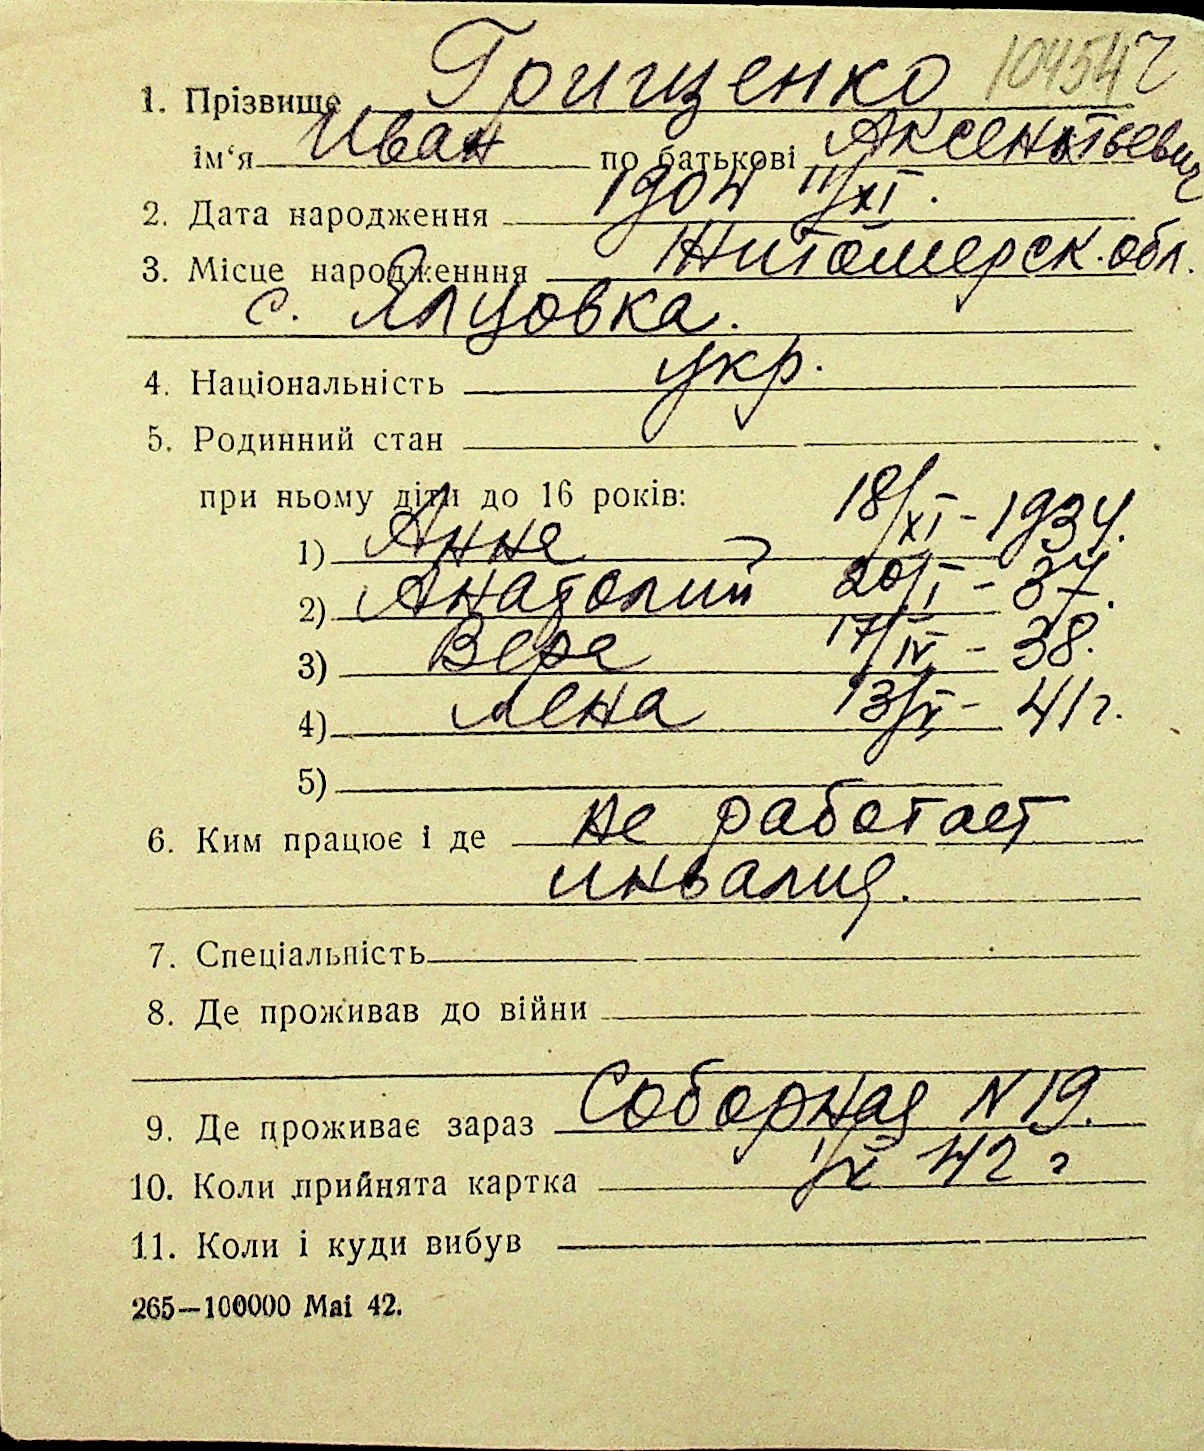 104542
1. Прізвище Грищенко
ім‘я Иван по батькові Аксентьевич
2. Дата народження 1904 11/XI.
3. Місце народженння Житомерск. обл.
с. Япцовка.
4. Національність укр.
5. Родинний стан
при ньому діти до 16 років:
1) Анна 18/XI - 1934.
2) Анатолий 20/I - 37.
3) Вера 17/IV - 38.
4) Лена 13/X - 41 г.
5)
6. Ким працює і де не работает
инвалид.
7. Спеціальність
8. Де проживав до війни
9. Де проживає зараз Соборная N 19.
10. Коли прийнята картка 1/X 42 г
11. Коли і куди вибув
265—100000 Mai 42.